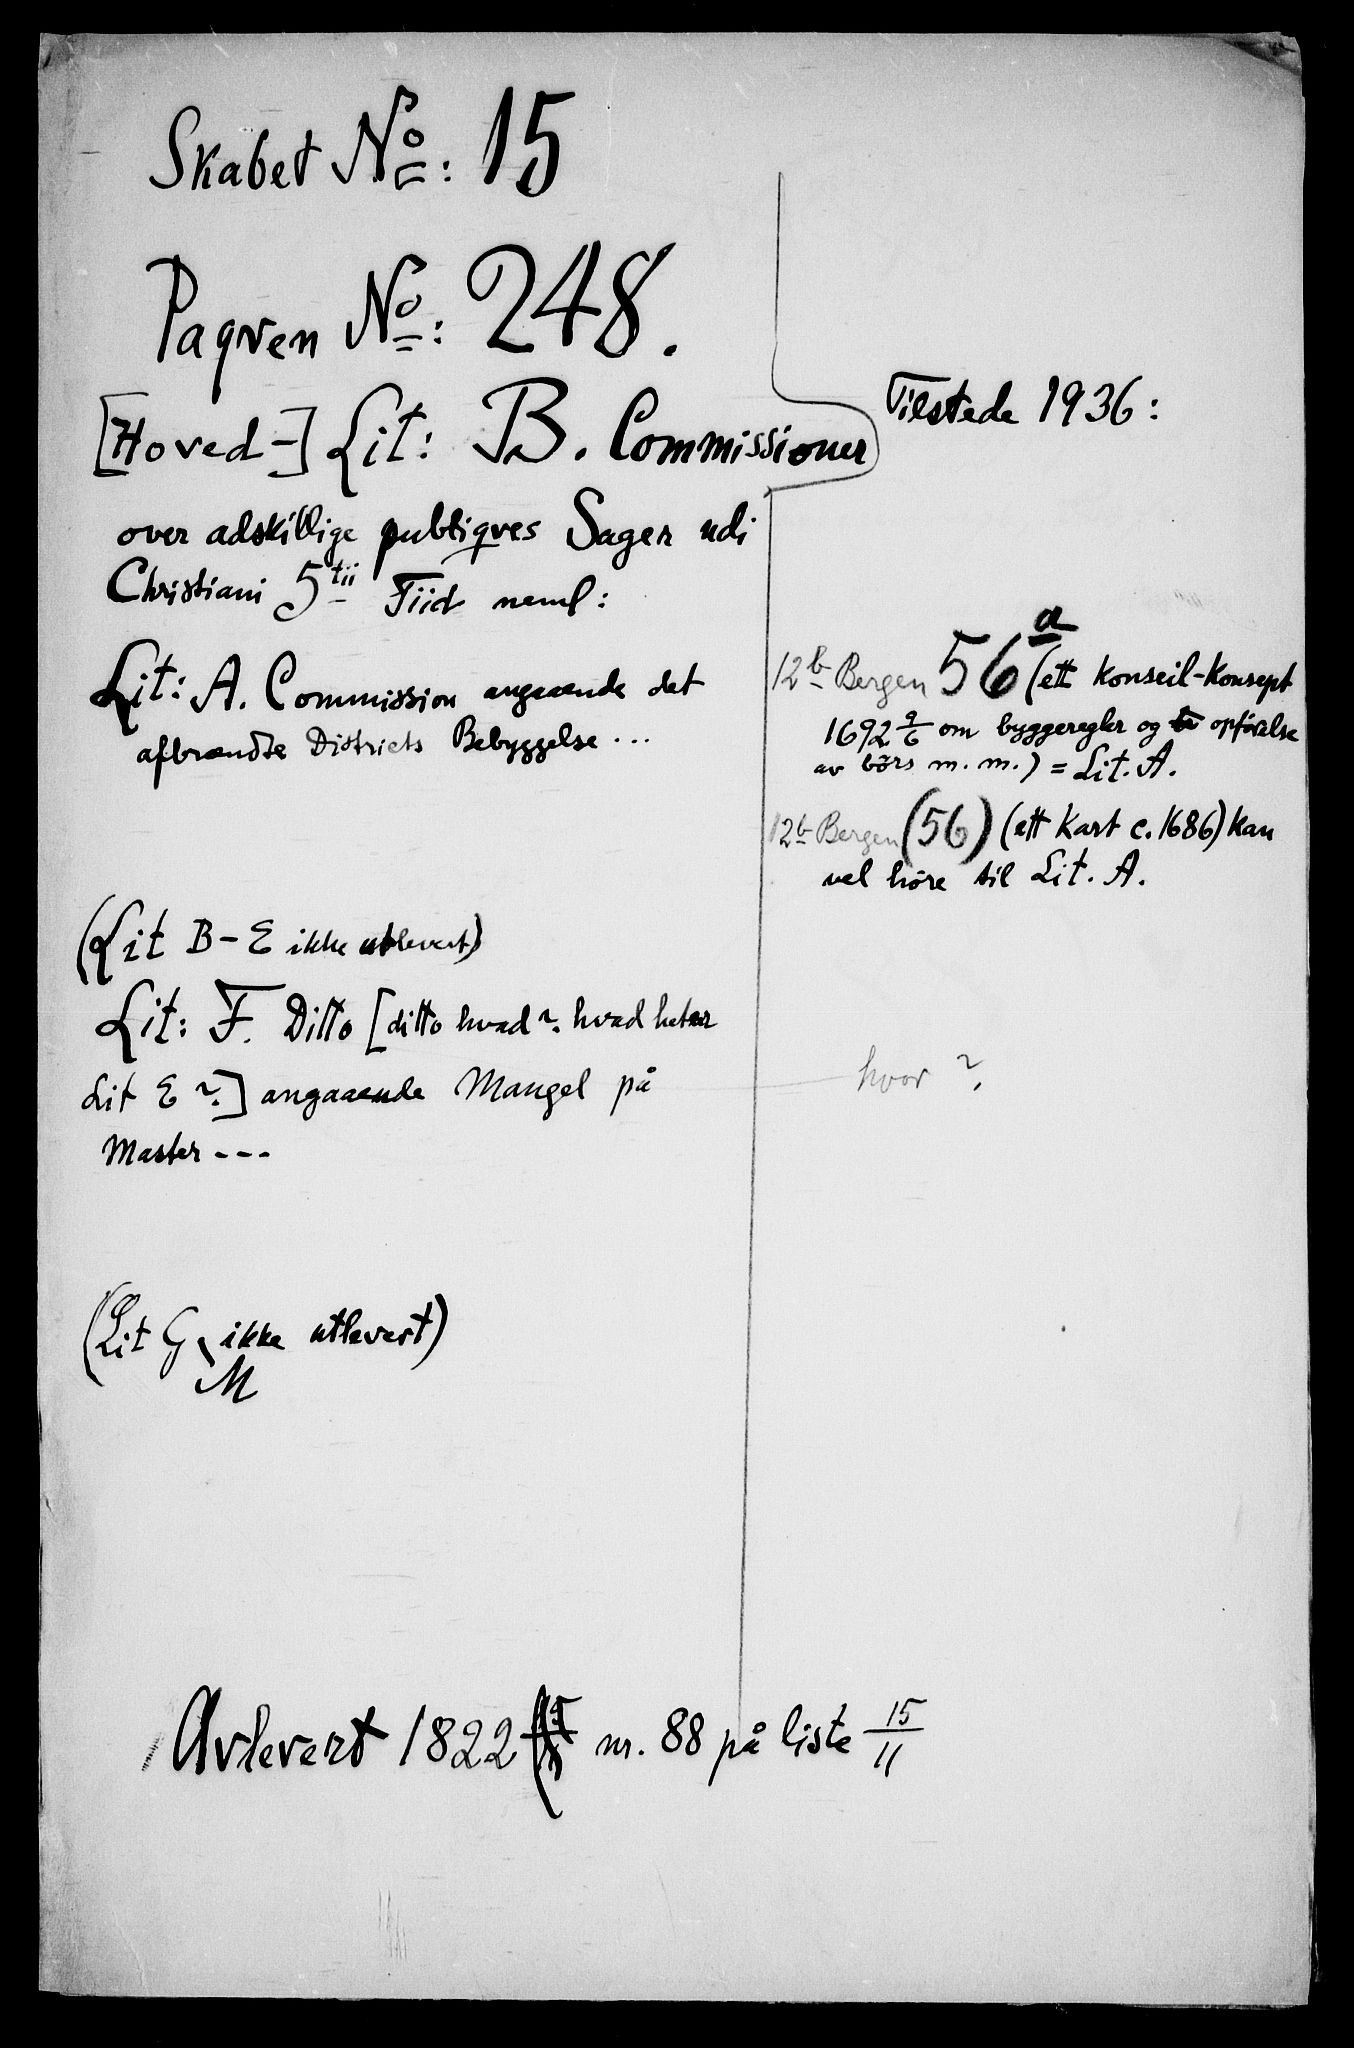 Skabet No: 15
Paqven No: 248.
[Hoved-] Lit: B. Commissioner
over adskillige publiqves Sager udi
Christiani 5tii Tiid neml:
Lit: A. Commission angaaende det
afbrændte Districts Bebyggelse ...
(Lit B-E ikke utlevert)
Lit: F. Ditto [ditto hvad?. hvad heter
Lit E ?.] angaaende Mangel på
Master ---
(Lit G, ikke utlevert)
M
Tilstede 1936:
12b Bergen 56a (ett konseil-konsept
1692 9/6 om byggeregler og opförelse
av börs m. m.) = Lit. A.
12b Bergen (56) (ett kart c. 1686) kan
vel höre til Lit. A.
hvor ?.
Avlevert 1822 nr. 88 på liste 15/11